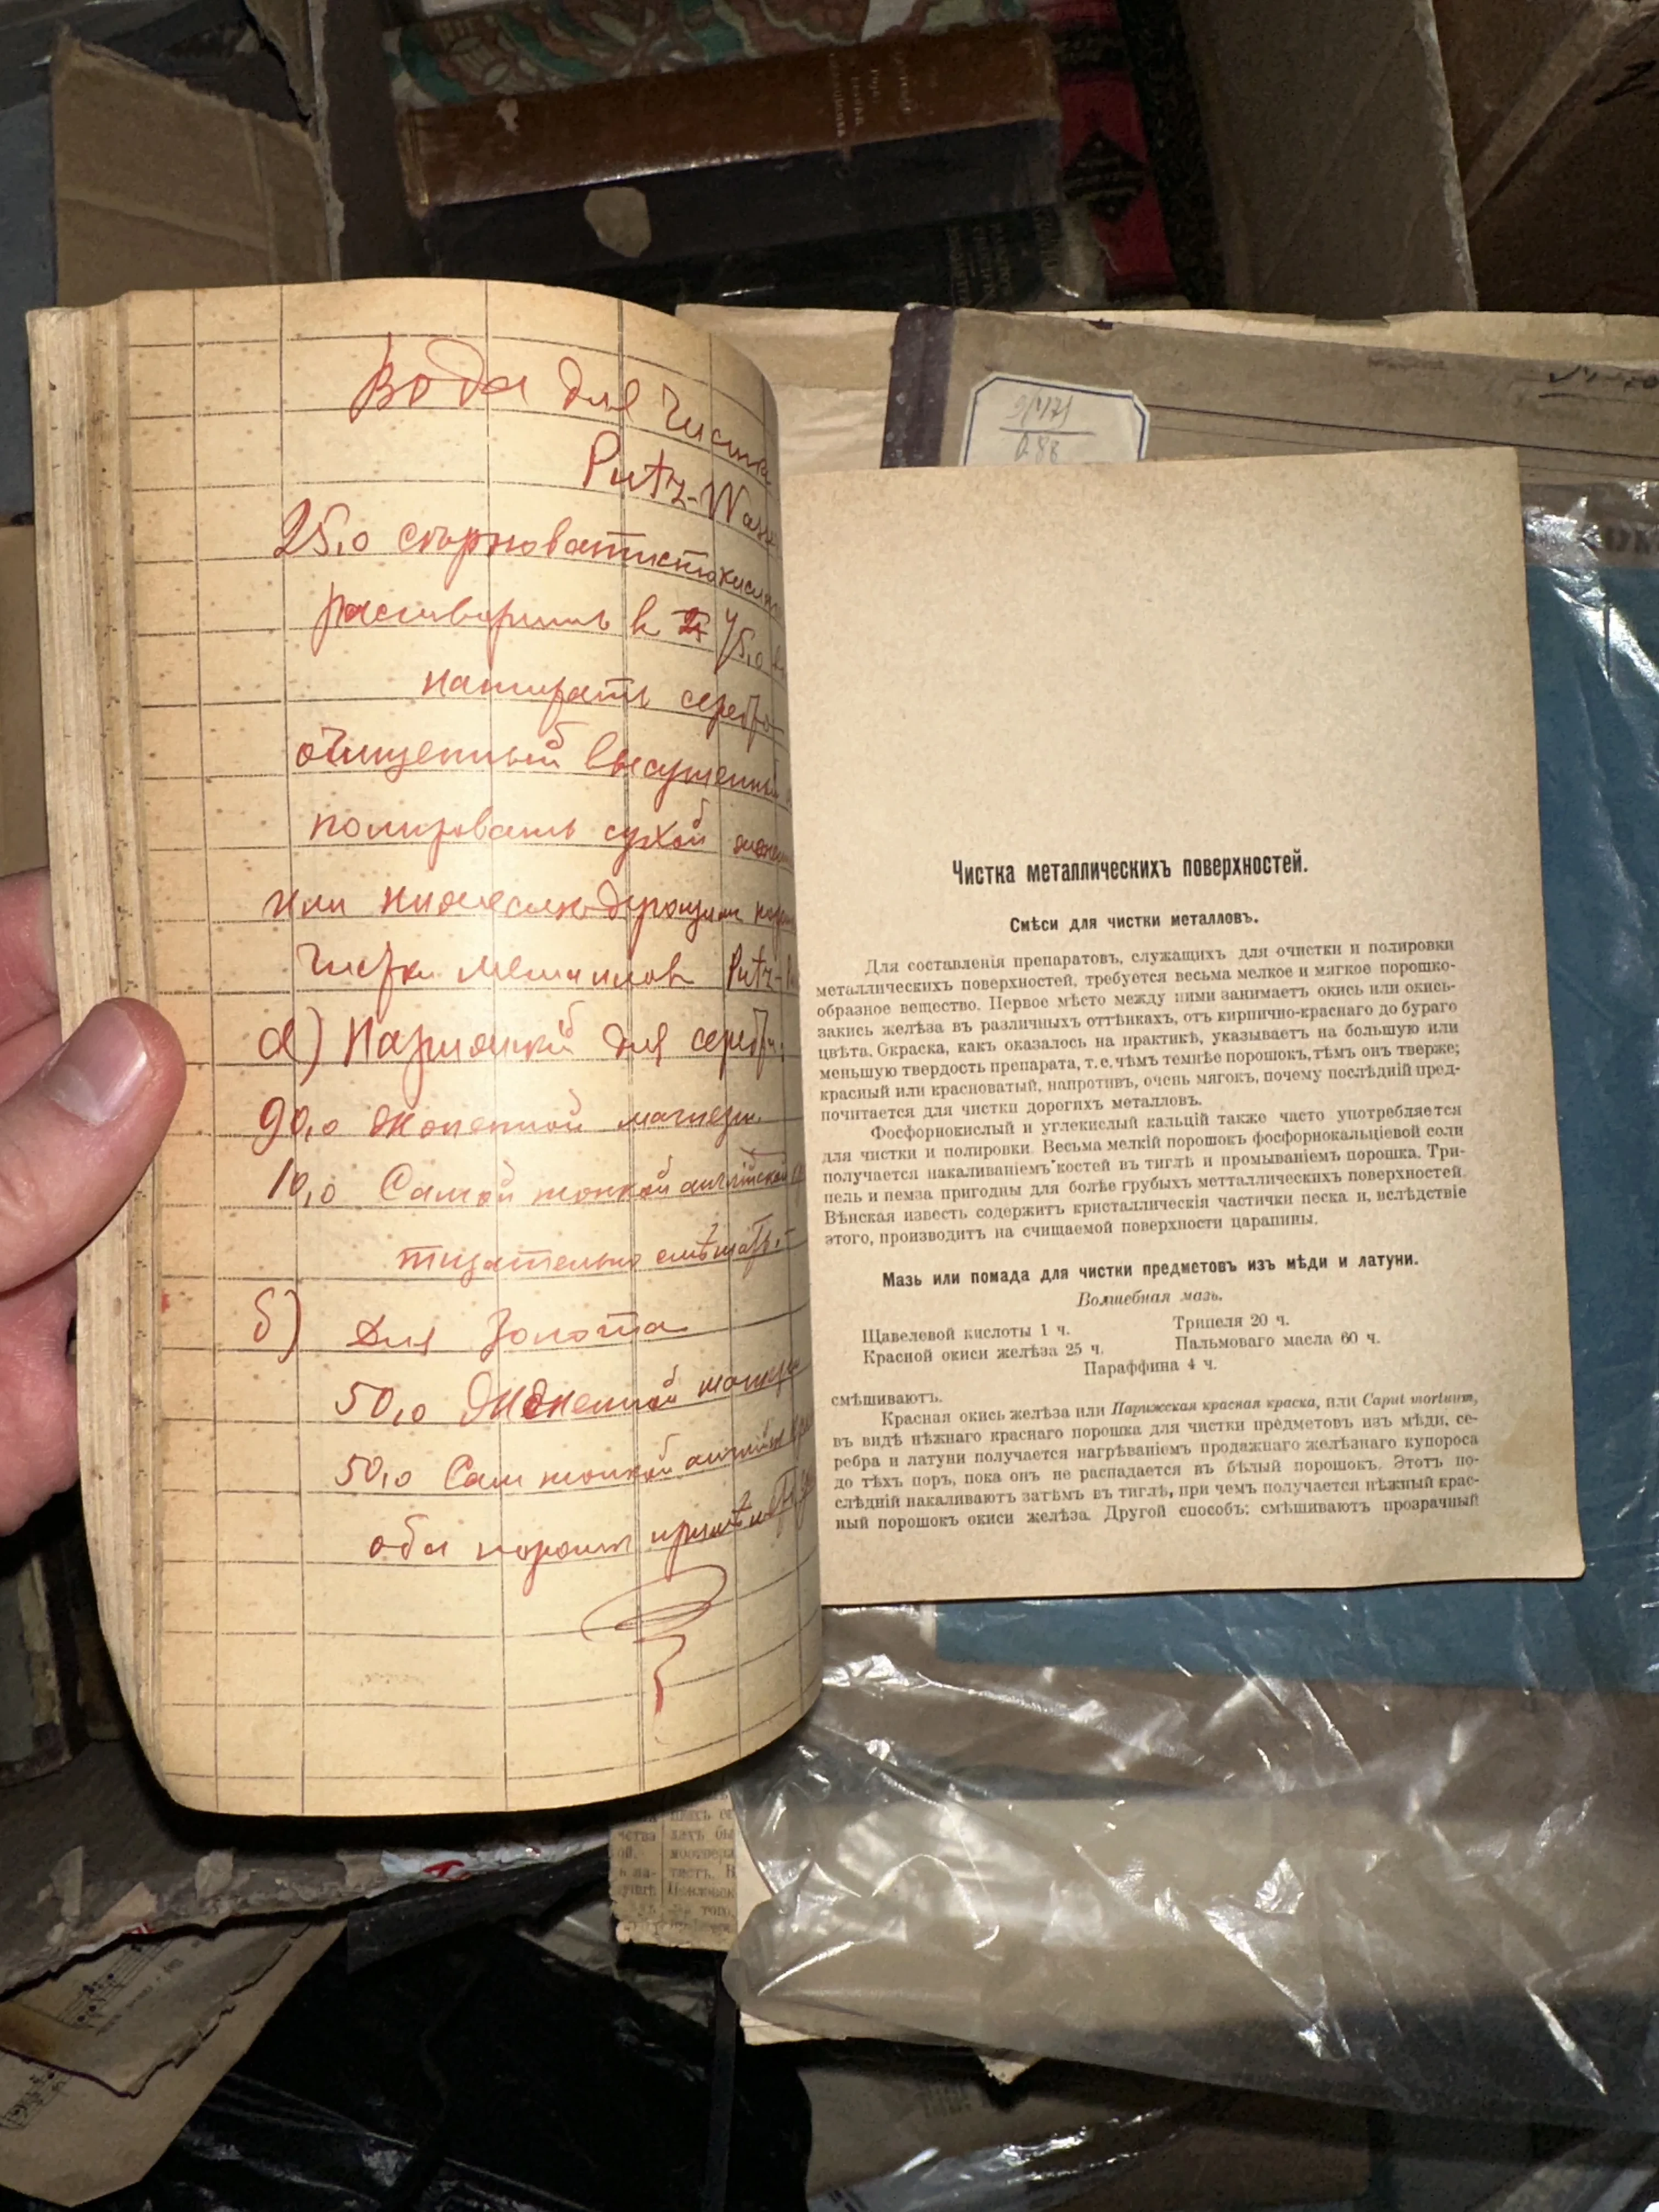 Вода для чистк
Putz-Wass
25,0 сѣрноватистокисл
растворить в 75,0
натирать серебро
очищенный высушенный
полировать сухой
или
чистки металлов Putz-
а) Порошкъ для серебр
90,0 жженной магнези
10,0 Самой тонкой английской
тщательно смѣшать
б) Для Золота
50,0 жженной магнез
50,0 Сам тонкой английск
оба порошк
Чистка металлическихъ поверхностей.
Смѣси для чистки металловъ.
Для составленія препаратовъ, служащихъ для очистки и полировки
металлическихъ поверхностей, требуется весьма мелкое и мягкое порошко-
образное вещество. Первое мѣсто между ними занимаетъ окись или окись-
закись желѣза въ различныхъ оттѣнкахъ, отъ кирпично-краснаго до бураго
цвѣта. Окраска, какъ оказалось на практикѣ, указываетъ на большую или
меньшую твердость препарата, т. е. чѣмъ темнѣе порошокъ, тѣмъ онъ тверже;
красный или красноватый, напротивъ, очень мягокъ, почему послѣдній пред-
почитается для чистки дорогихъ металловъ.
Фосфорнокислый и углекислый кальцій также часто употребляется
для чистки и полировки. Весьма мелкій порошокъ фосфорнокальціевой соли
получается накаливаніемъ костей въ тиглѣ и промываніемъ порошка. Три-
пель и пемза пригодны для болѣе грубыхъ метталлическихъ поверхностей.
Вѣнская известь содержитъ кристаллическія частички песка и, вслѣдствіе
этого, производитъ на счищаемой поверхности царапины.
Мазь или помада для чистки предметовъ изъ мѣди и латуни.
Волшебная мазь.
Щавелевой кислоты 1 ч. Трипеля 20 ч.
Красной окиси желѣза 25 ч. Пальмоваго масла 60 ч.
Параффина 4 ч.
смѣшиваютъ.
Красная окись желѣза или Парижская красная краска, или Caput mortuum,
въ видѣ нѣжнаго краснаго порошка для чистки предметовъ изъ мѣди, се-
ребра и латуни получается нагрѣваніемъ продажнаго желѣзнаго купороса
до тѣхъ поръ, пока онъ не распадается въ бѣлый порошокъ. Этотъ по-
слѣдній накаливаютъ затѣмъ въ тиглѣ, при чемъ получается нѣжный крас-
ный порошокъ окиси желѣза. Другой способъ: смѣшиваютъ прозрачный